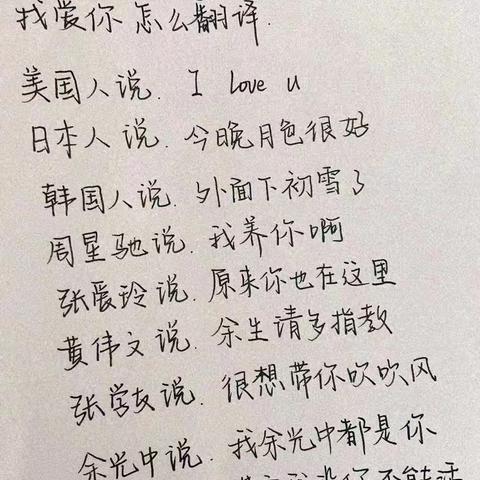 我爱你怎么翻译.
美国人说. I love u
日本人说. 今晚月色很好
韩国人说. 外面下初雪了
周星驰说. 我养你啊
张爱玲说. 原来你也在这里
黄伟文说. 余生请多指教
张学友说. 很想带你吹吹风
余光中说. 我余光中都是你